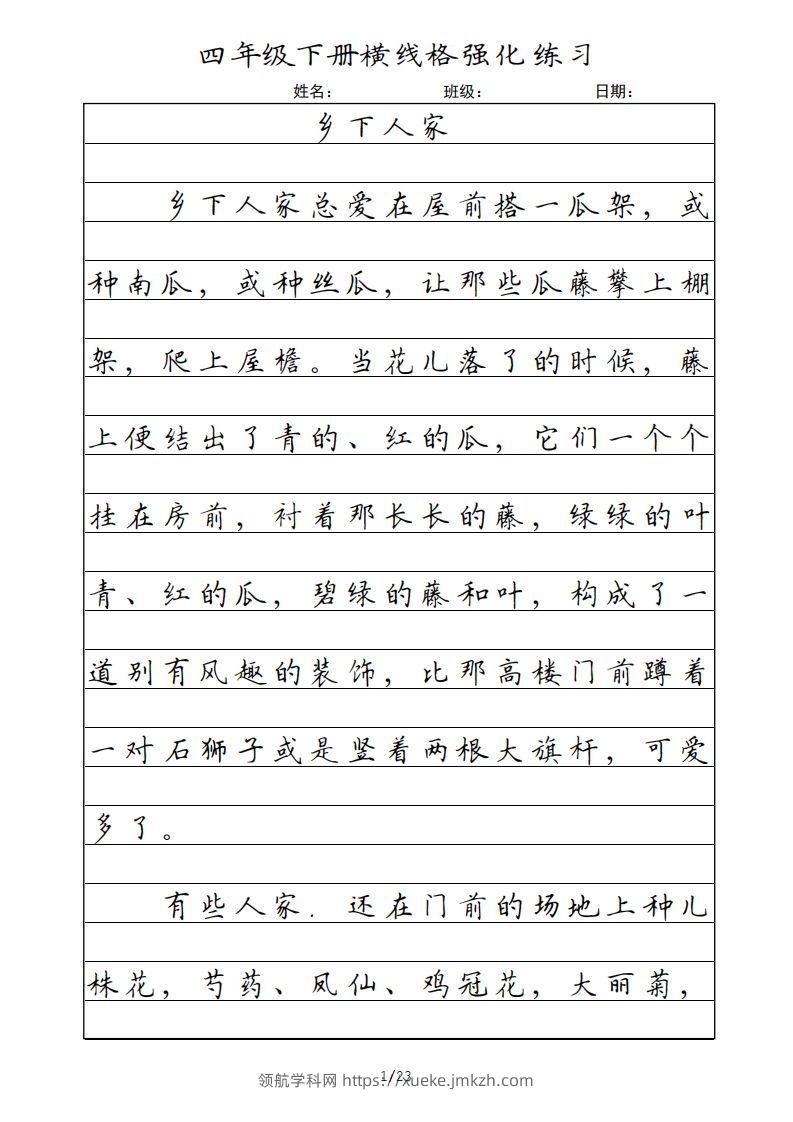 四年级下册横线格强化练习
姓名： 班级： 日期：
乡下人家
乡下人家总爱在屋前搭一瓜架，或
种南瓜，或种丝瓜，让那些瓜藤攀上棚
架，爬上屋檐。当花儿落了的时候，藤
上便结出了青的、红的瓜，它们一个个
挂在房前，衬着那长长的藤，绿绿的叶
青、红的瓜，碧绿的藤和叶，构成了一
道别有风趣的装饰，比那高楼门前蹲着
一对石狮子或是竖着两根大旗杆，可爱
多了。
有些人家．还在门前的场地上种几
株花，芍药、凤仙、鸡冠花，大丽菊，
1/23
领航学科网 https://xueke.jmkzh.com